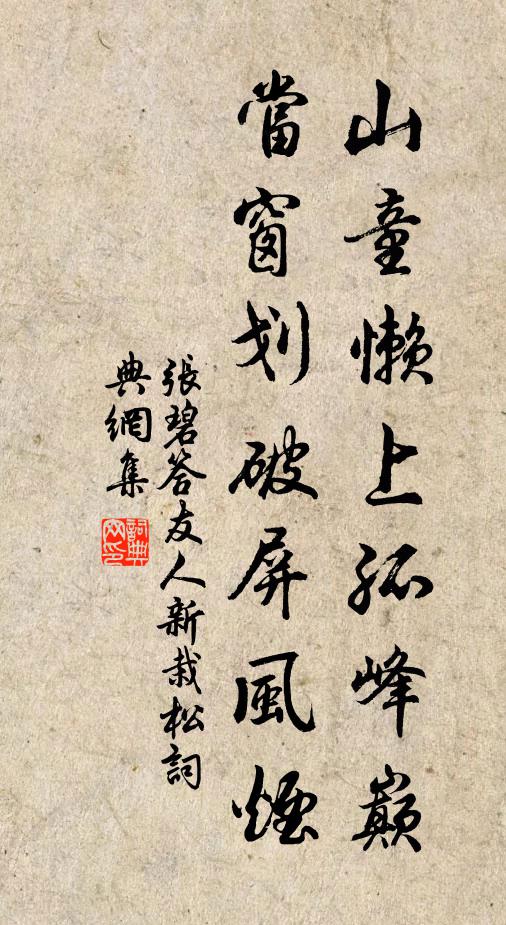 山童懶上孤峰巔
當窗划破屏風煙
張碧答友人新栽松詞
典網集
詞典網印